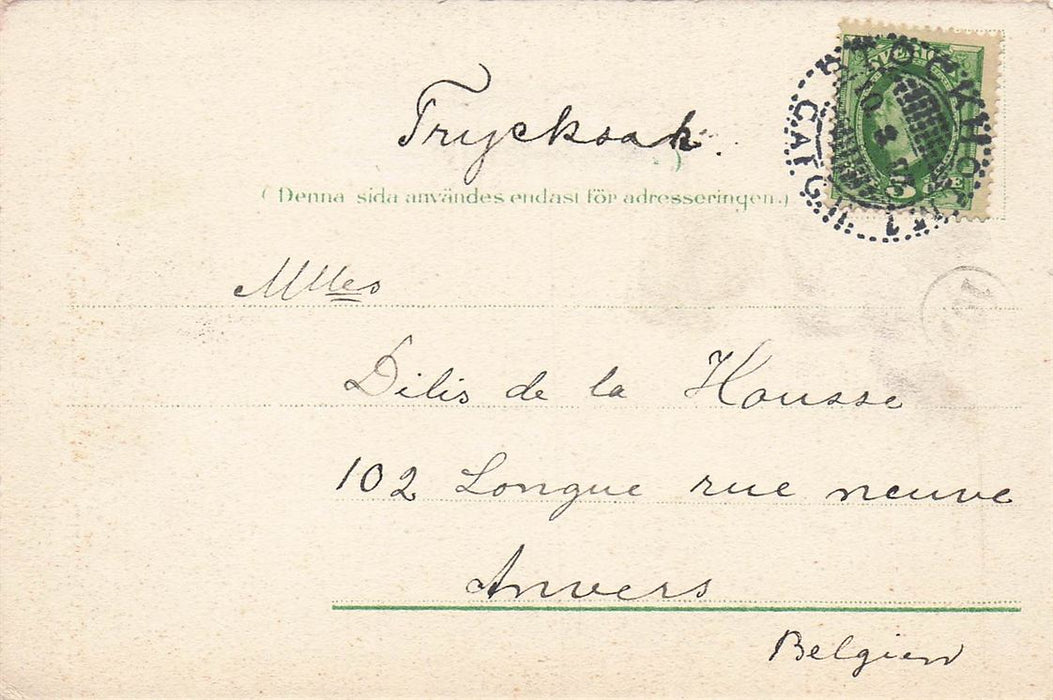 Trycksak.
(Denna sida användes endast för adresseringen.)
SVERIGE
STOCKHOLM
Mlles
Dilis de la Housse
102 Longue rue neuve
Anvers
Belgien